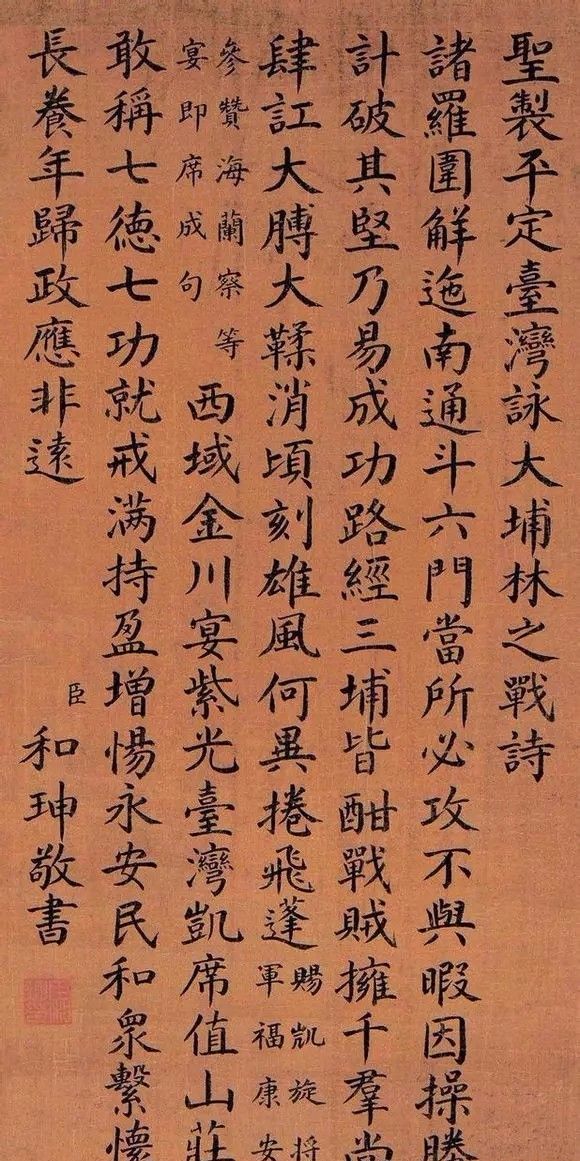 聖製平定臺灣詠大埔林之戰詩
諸羅圍解迤南通斗六門當所必攻不與暇因操勝
計破其堅乃易成功路經三埔皆酣戰賊擁千羣尚
肆訌大膊大鞣消頃刻雄風何異捲飛蓬
賜凱旋將
軍福康安
參贊海蘭察等
宴即席成句
西域金川宴紫光臺灣凱席值山莊
敢稱七徳七功就戒满持盈增惕永安民和衆繫懷
長養年歸政應非逺
臣和珅敬書